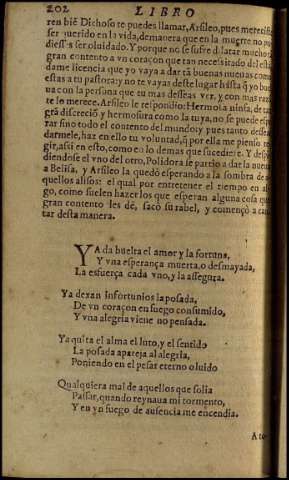 202 LIBRO
ren bié Dichoso te puedes llamar, Arsileo, pues mereciste
ser querido en la vida, demanera que en la muerte no pu
diesses ser oluidado. Y porque no se sufre dilatar mucho
gran contento a vn coraçon que tan necessitado del está
dame licencia que yo vaya a dar tã buenas nueuas como
estas a tu pastora: y no te vayas deste lugar hasta q̃ yo bue
ua con la persona que tu mas desseas ver, y con mas razõ
te lo merece. Arsileo le respondio: Hermosa ninfa, de tã
grã discreciõ y hermosura como la tuya, no se puede espe
rar sino todo el contento del mundo: y pues tanto desseas
darmele, haz en ello tu voluntad, q̃ por ella me pienso re
gir, assi en esto, como en lo demas que sucediere. Y despi
diendose el vno del otro, Polidora se partio a dar la nueua
a Belisa, y Arsileo la quedó esperando a la sombra de a
quellos alisos: el qual por entretener el tiempo en al
go, como suelen hazer los que esperan alguna cosa que
gran contento les dé, sacó su rabel, y començò a can
tar desta manera.
YA da buelta el amor y la fortuna,
Y vna esperança muerta, o desmayada,
La esfuerça cada vno, y la assegura.
Ya dexan infortunios la posada,
De vn coraçon en fuego consumido,
Y vna alegria viene no pensada.
Ya quita el alma el luto, y el sentido
La posada apareja al alegria,
Poniendo en el pesar eterno oluido
Qualquiera mal de aquellos que solia
Passar, quando reynaua mi tormento,
Y en vn fuego de ausencia me encendia.
A to